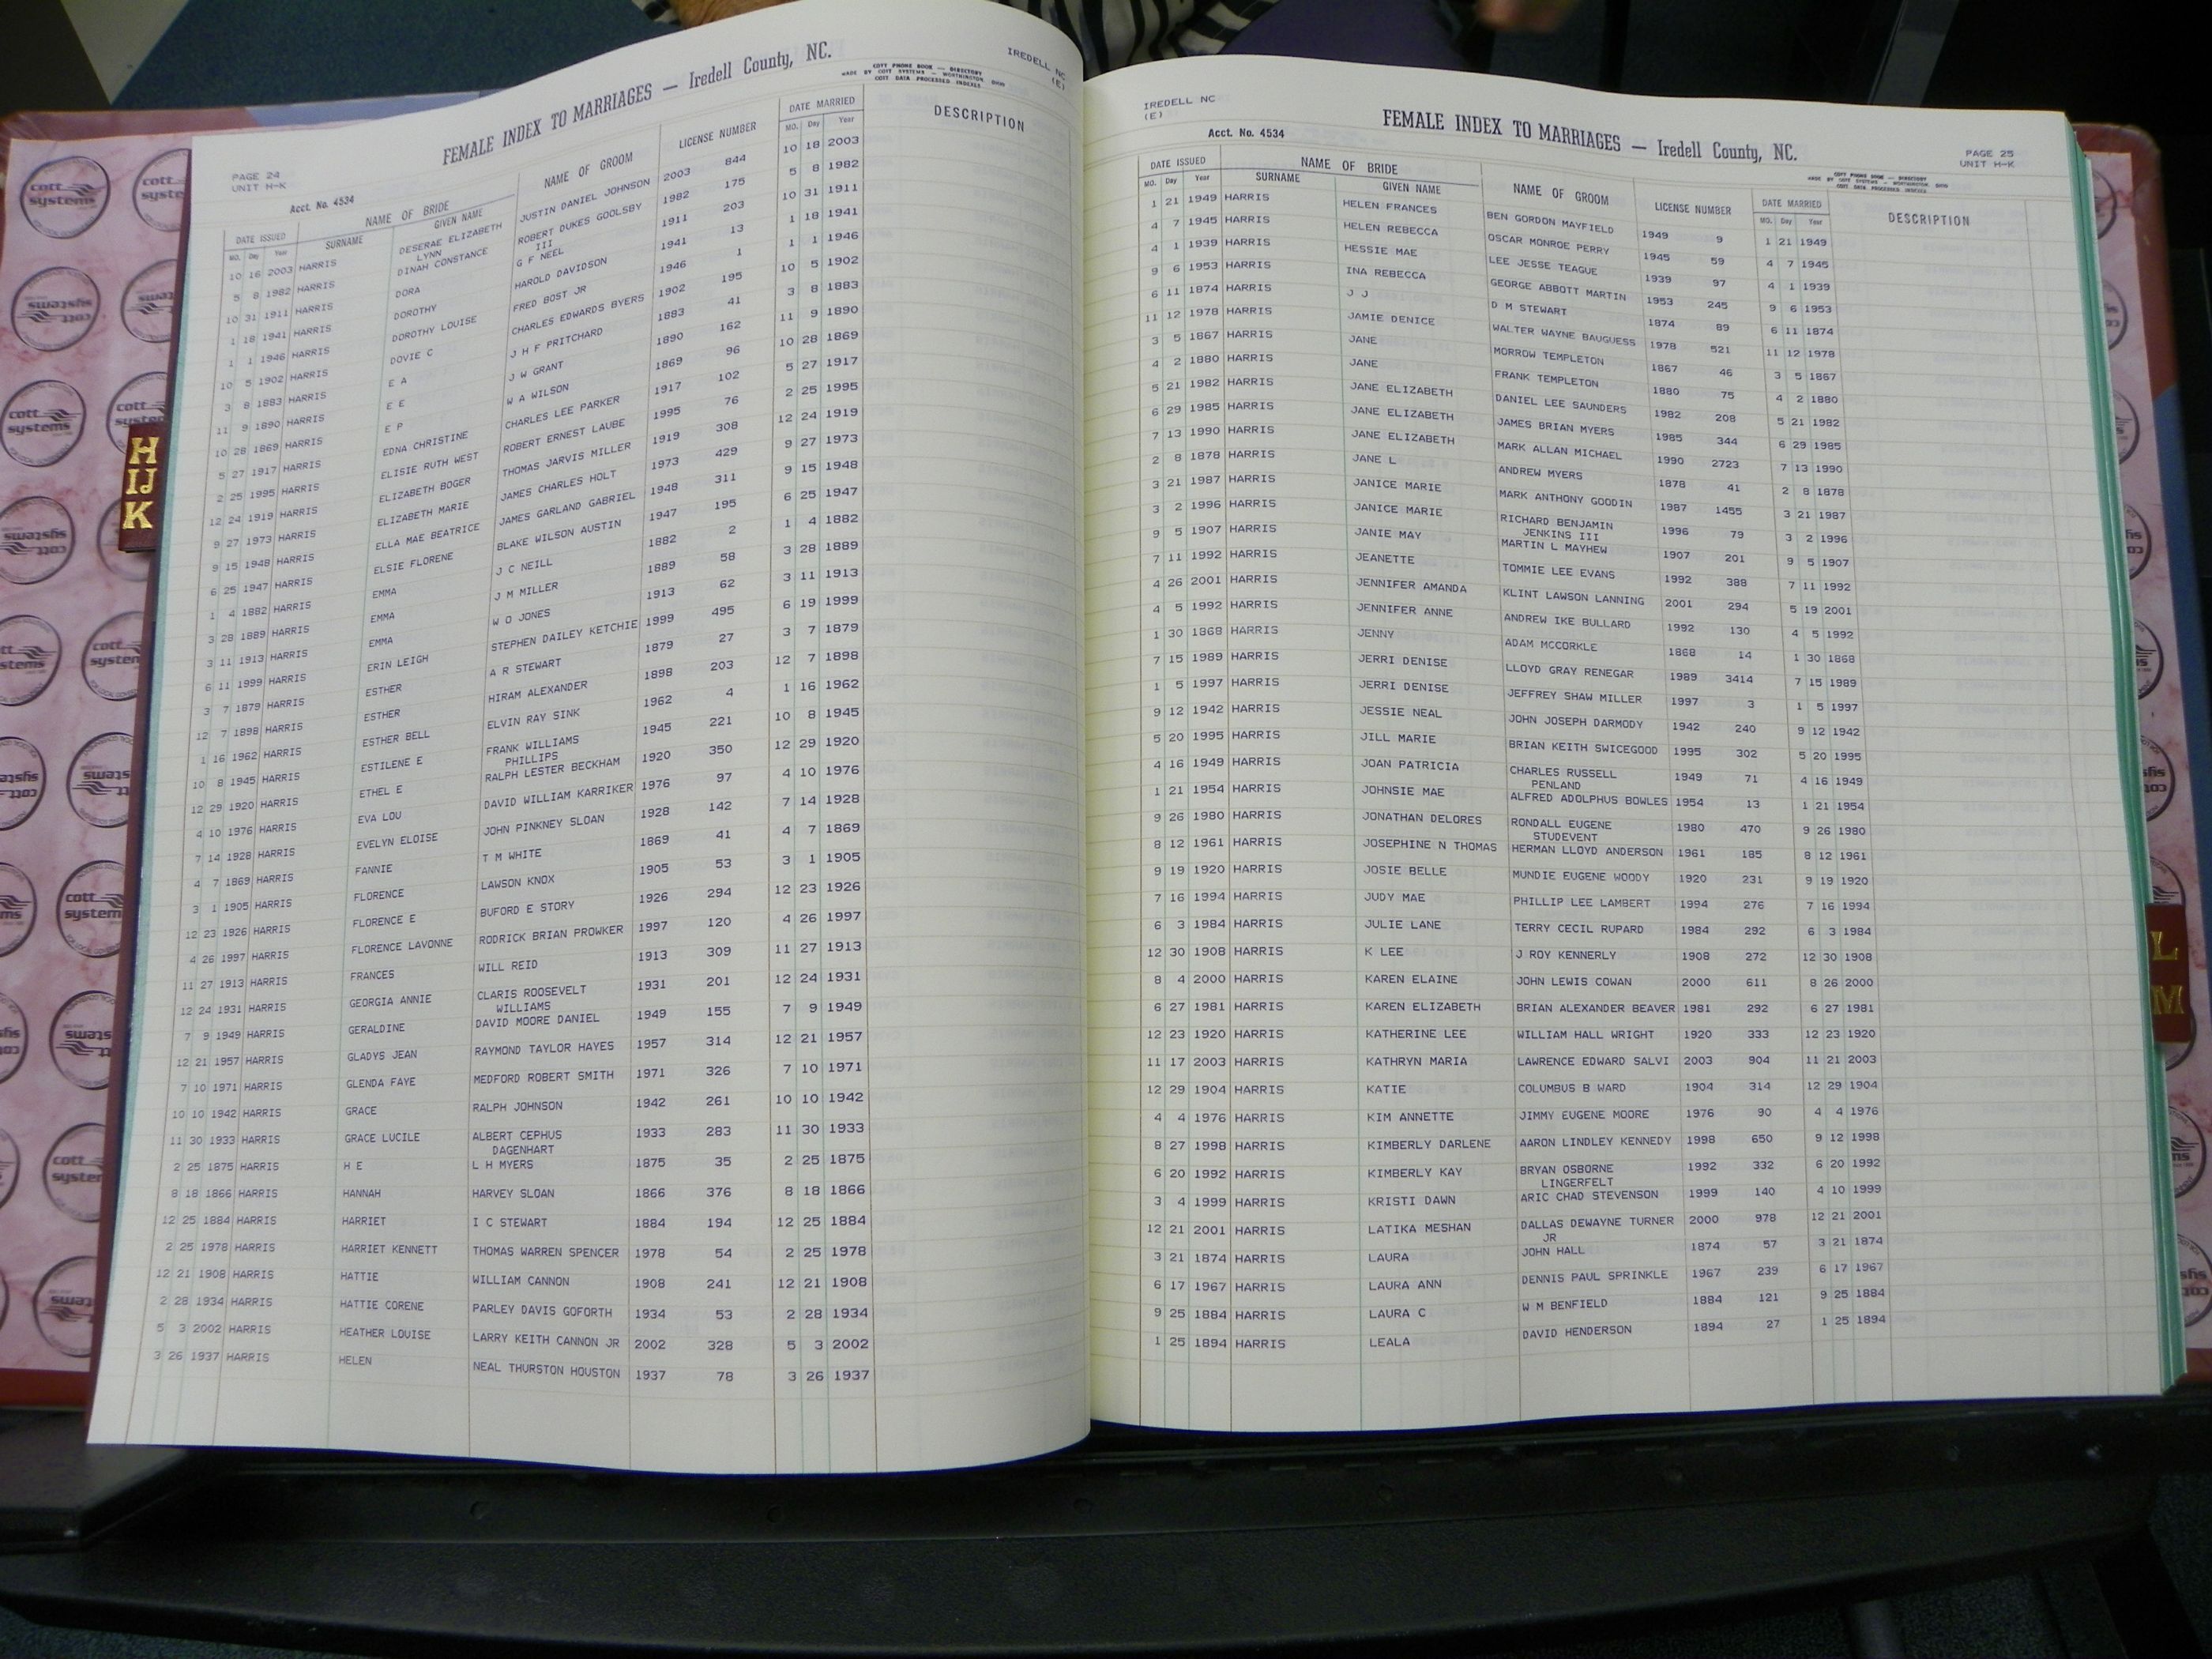 PAGE 24
UNIT H-K
FEMALE INDEX TO MARRIAGES — Iredell County, NC.
COTT PHONE BOOK — DIRECTORY
MADE BY COTT SYSTEMS — WORTHINGTON, OHIO
COTT DATA PROCESSED INDEXES
IREDELL NC
(E)
Acct. No. 4534
DATE ISSUED NAME OF BRIDE NAME OF GROOM LICENSE NUMBER DATE MARRIED DESCRIPTION
MO. Day Year SURNAME GIVEN NAME MO. Day Year
10 16 2003 HARRIS DESERAE ELIZABETH JUSTIN DANIEL JOHNSON 2003 844 10 18 2003
LYNN
5 8 1982 HARRIS DINAH CONSTANCE ROBERT DUKES GOOLSBY 1982 175 5 8 1982
III
10 31 1911 HARRIS DORA G F NEEL 1911 203 10 31 1911
1 18 1941 HARRIS DOROTHY HAROLD DAVIDSON 1941 13 1 18 1941
1 1 1946 HARRIS DOROTHY LOUISE FRED BOST JR 1946 1 1 1 1946
10 5 1902 HARRIS DOVIE C CHARLES EDWARDS BYERS 1902 195 10 5 1902
3 8 1883 HARRIS E A J H F PRITCHARD 1883 41 3 8 1883
11 9 1890 HARRIS E E J W GRANT 1890 162 11 9 1890
10 28 1869 HARRIS E P W A WILSON 1869 96 10 28 1869
5 27 1917 HARRIS EDNA CHRISTINE CHARLES LEE PARKER 1917 102 5 27 1917
2 25 1995 HARRIS ELISIE RUTH WEST ROBERT ERNEST LAUBE 1995 76 2 25 1995
12 24 1919 HARRIS ELIZABETH BOGER THOMAS JARVIS MILLER 1919 308 12 24 1919
9 27 1973 HARRIS ELIZABETH MARIE JAMES CHARLES HOLT 1973 429 9 27 1973
9 15 1948 HARRIS ELLA MAE BEATRICE JAMES GARLAND GABRIEL 1948 311 9 15 1948
6 25 1947 HARRIS ELSIE FLORENE BLAKE WILSON AUSTIN 1947 195 6 25 1947
1 4 1882 HARRIS EMMA J C NEILL 1882 2 1 4 1882
3 28 1889 HARRIS EMMA J M MILLER 1889 58 3 28 1889
3 11 1913 HARRIS EMMA W O JONES 1913 62 3 11 1913
6 11 1999 HARRIS ERIN LEIGH STEPHEN DAILEY KETCHIE 1999 495 6 19 1999
3 7 1879 HARRIS ESTHER A R STEWART 1879 27 3 7 1879
12 7 1898 HARRIS ESTHER HIRAM ALEXANDER 1898 203 12 7 1898
1 16 1962 HARRIS ESTHER BELL ELVIN RAY SINK 1962 4 1 16 1962
10 8 1945 HARRIS ESTILENE E FRANK WILLIAMS 1945 221 10 8 1945
PHILLIPS
12 29 1920 HARRIS ETHEL E RALPH LESTER BECKHAM 1920 350 12 29 1920
4 10 1976 HARRIS EVA LOU DAVID WILLIAM KARRIKER 1976 97 4 10 1976
7 14 1928 HARRIS EVELYN ELOISE JOHN PINKNEY SLOAN 1928 142 7 14 1928
4 7 1869 HARRIS FANNIE T M WHITE 1869 41 4 7 1869
3 1 1905 HARRIS FLORENCE LAWSON KNOX 1905 53 3 1 1905
12 23 1926 HARRIS FLORENCE E BUFORD E STORY 1926 294 12 23 1926
4 26 1997 HARRIS FLORENCE LAVONNE RODRICK BRIAN PROWKER 1997 120 4 26 1997
11 27 1913 HARRIS FRANCES WILL REID 1913 309 11 27 1913
12 24 1931 HARRIS GEORGIA ANNIE CLARIS ROOSEVELT 1931 201 12 24 1931
WILLIAMS
7 9 1949 HARRIS GERALDINE DAVID MOORE DANIEL 1949 155 7 9 1949
12 21 1957 HARRIS GLADYS JEAN RAYMOND TAYLOR HAYES 1957 314 12 21 1957
7 10 1971 HARRIS GLENDA FAYE MEDFORD ROBERT SMITH 1971 326 7 10 1971
10 10 1942 HARRIS GRACE RALPH JOHNSON 1942 261 10 10 1942
11 30 1933 HARRIS GRACE LUCILE ALBERT CEPHUS 1933 283 11 30 1933
DAGENHART
2 25 1875 HARRIS H E L H MYERS 1875 35 2 25 1875
8 18 1866 HARRIS HANNAH HARVEY SLOAN 1866 376 8 18 1866
12 25 1884 HARRIS HARRIET I C STEWART 1884 194 12 25 1884
2 25 1978 HARRIS HARRIET KENNETT THOMAS WARREN SPENCER 1978 54 2 25 1978
12 21 1908 HARRIS HATTIE WILLIAM CANNON 1908 241 12 21 1908
2 28 1934 HARRIS HATTIE CORENE PARLEY DAVIS GOFORTH 1934 53 2 28 1934
5 3 2002 HARRIS HEATHER LOUISE LARRY KEITH CANNON JR 2002 328 5 3 2002
3 26 1937 HARRIS HELEN NEAL THURSTON HOUSTON 1937 78 3 26 1937
IREDELL NC
(E)
FEMALE INDEX TO MARRIAGES — Iredell County, NC.
PAGE 25
UNIT H-K
Acct. No. 4534
COTT PHONE BOOK — DIRECTORY
MADE BY COTT SYSTEMS — WORTHINGTON, OHIO
COTT DATA PROCESSED INDEXES
DATE ISSUED NAME OF BRIDE NAME OF GROOM LICENSE NUMBER DATE MARRIED DESCRIPTION
MO. Day Year SURNAME GIVEN NAME MO. Day Year
1 21 1949 HARRIS HELEN FRANCES BEN GORDON MAYFIELD 1949 9 1 21 1949
4 7 1945 HARRIS HELEN REBECCA OSCAR MONROE PERRY 1945 59 4 7 1945
4 1 1939 HARRIS HESSIE MAE LEE JESSE TEAGUE 1939 97 4 1 1939
9 6 1953 HARRIS INA REBECCA GEORGE ABBOTT MARTIN 1953 245 9 6 1953
6 11 1874 HARRIS J J D M STEWART 1874 89 6 11 1874
11 12 1978 HARRIS JAMIE DENICE WALTER WAYNE BAUGUESS 1978 521 11 12 1978
3 5 1867 HARRIS JANE MORROW TEMPLETON 1867 46 3 5 1867
4 2 1880 HARRIS JANE FRANK TEMPLETON 1880 75 4 2 1880
5 21 1982 HARRIS JANE ELIZABETH DANIEL LEE SAUNDERS 1982 208 5 21 1982
6 29 1985 HARRIS JANE ELIZABETH JAMES BRIAN MYERS 1985 344 6 29 1985
7 13 1990 HARRIS JANE ELIZABETH MARK ALLAN MICHAEL 1990 2723 7 13 1990
2 8 1878 HARRIS JANE L ANDREW MYERS 1878 41 2 8 1878
3 21 1987 HARRIS JANICE MARIE MARK ANTHONY GOODIN 1987 1455 3 21 1987
3 2 1996 HARRIS JANICE MARIE RICHARD BENJAMIN 1996 79 3 2 1996
JENKINS III
9 5 1907 HARRIS JANIE MAY MARTIN L MAYHEW 1907 201 9 5 1907
7 11 1992 HARRIS JEANETTE TOMMIE LEE EVANS 1992 388 7 11 1992
4 26 2001 HARRIS JENNIFER AMANDA KLINT LAWSON LANNING 2001 294 5 19 2001
4 5 1992 HARRIS JENNIFER ANNE ANDREW IKE BULLARD 1992 130 4 5 1992
1 30 1868 HARRIS JENNY ADAM MCCORKLE 1868 14 1 30 1868
7 15 1989 HARRIS JERRI DENISE LLOYD GRAY RENEGAR 1989 3414 7 15 1989
1 5 1997 HARRIS JERRI DENISE JEFFREY SHAW MILLER 1997 3 1 5 1997
9 12 1942 HARRIS JESSIE NEAL JOHN JOSEPH DARMODY 1942 240 9 12 1942
5 20 1995 HARRIS JILL MARIE BRIAN KEITH SWICEGOOD 1995 302 5 20 1995
4 16 1949 HARRIS JOAN PATRICIA CHARLES RUSSELL 1949 71 4 16 1949
PENLAND
1 21 1954 HARRIS JOHNSIE MAE ALFRED ADOLPHUS BOWLES 1954 13 1 21 1954
9 26 1980 HARRIS JONATHAN DELORES RONDALL EUGENE 1980 470 9 26 1980
STUDEVENT
8 12 1961 HARRIS JOSEPHINE N THOMAS HERMAN LLOYD ANDERSON 1961 185 8 12 1961
9 19 1920 HARRIS JOSIE BELLE MUNDIE EUGENE WOODY 1920 231 9 19 1920
7 16 1994 HARRIS JUDY MAE PHILLIP LEE LAMBERT 1994 276 7 16 1994
6 3 1984 HARRIS JULIE LANE TERRY CECIL RUPARD 1984 292 6 3 1984
12 30 1908 HARRIS K LEE J ROY KENNERLY 1908 272 12 30 1908
8 4 2000 HARRIS KAREN ELAINE JOHN LEWIS COWAN 2000 611 8 26 2000
6 27 1981 HARRIS KAREN ELIZABETH BRIAN ALEXANDER BEAVER 1981 292 6 27 1981
12 23 1920 HARRIS KATHERINE LEE WILLIAM HALL WRIGHT 1920 333 12 23 1920
11 17 2003 HARRIS KATHRYN MARIA LAWRENCE EDWARD SALVI 2003 904 11 21 2003
12 29 1904 HARRIS KATIE COLUMBUS B WARD 1904 314 12 29 1904
4 4 1976 HARRIS KIM ANNETTE JIMMY EUGENE MOORE 1976 90 4 4 1976
8 27 1998 HARRIS KIMBERLY DARLENE AARON LINDLEY KENNEDY 1998 650 9 12 1998
6 20 1992 HARRIS KIMBERLY KAY BRYAN OSBORNE 1992 332 6 20 1992
LINGERFELT
3 4 1999 HARRIS KRISTI DAWN ARIC CHAD STEVENSON 1999 140 4 10 1999
12 21 2001 HARRIS LATIKA MESHAN DALLAS DEWAYNE TURNER 2000 978 12 21 2001
JR
3 21 1874 HARRIS LAURA JOHN HALL 1874 57 3 21 1874
6 17 1967 HARRIS LAURA ANN DENNIS PAUL SPRINKLE 1967 239 6 17 1967
9 25 1884 HARRIS LAURA C W M BENFIELD 1884 121 9 25 1884
1 25 1894 HARRIS LEALA DAVID HENDERSON 1894 27 1 25 1894
H
IJ
K
L
M
cott
systems